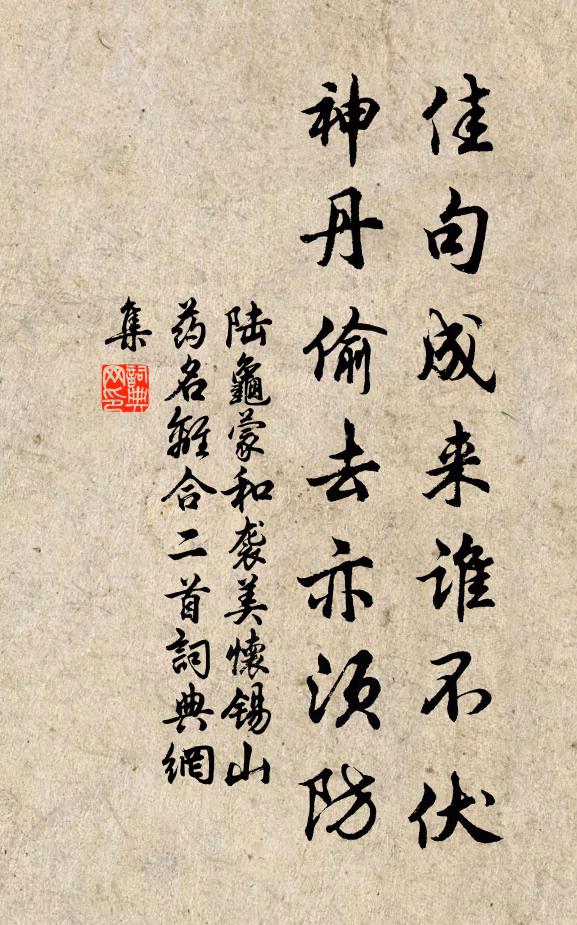 佳句成来誰不伏
神丹偷去亦須防
陆龜蒙和袭美懷锡山
药名離合二首詞典網
集
詞典网印